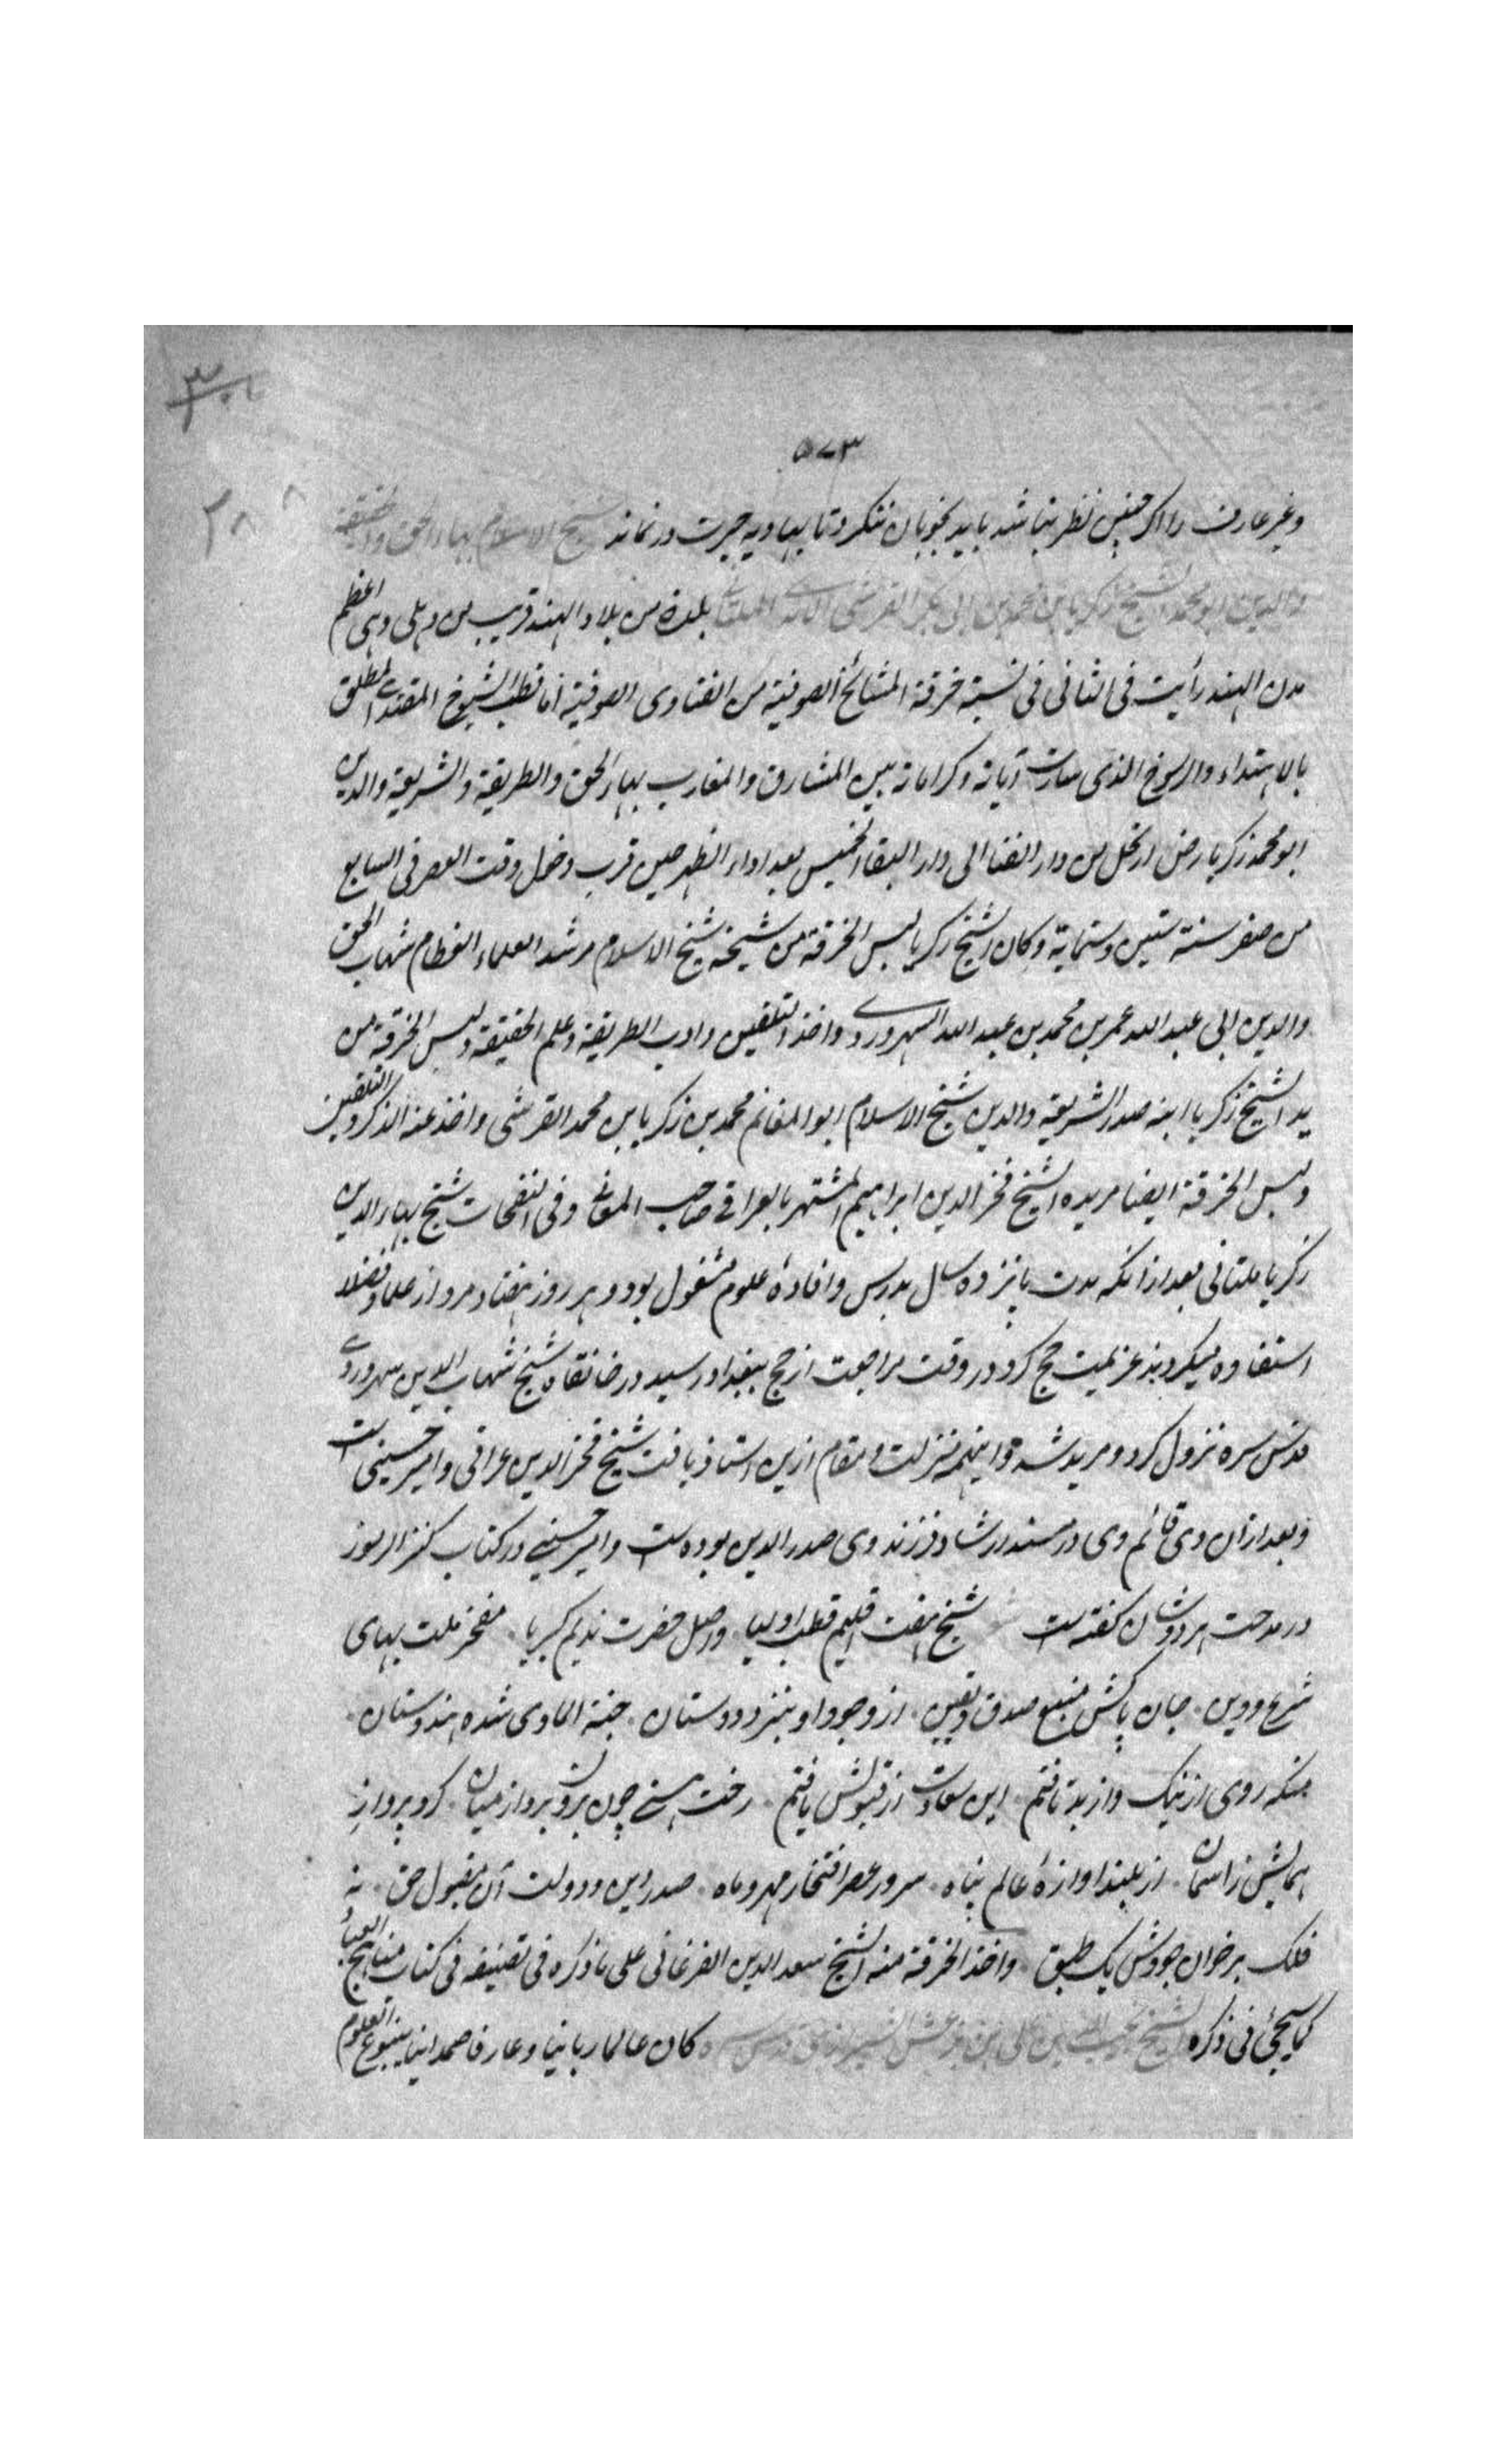 ۵۷۳
وغیر عارف را اگر چنین نظر نباشد باید بخوبان ننگرد تا بهاویه حیرت درنماند شیخ الاسلام بهاء الحق والحقیقة
والدین ابو محمد الشیخ زکریا بن محمد بن ابی بکر القرشی الاسدی الملتانی بلدة من بلاد الهند قریب من دهلی وهی اعظم
مدن الهند رأیت فی الثانی فی نسبة خرقة المشائخ الصوفیة من الفتاوی الصوفیة اما قطب الشیوخ المقتدی المطلق
بالاهتداء والرسوخ الذی سارت آیاته وکراماته بین المشارق والمغارب بهاء الحق والطریقة والشریعة والدین
ابو محمد زکریا رض ارتحل من دار الفنا الی دار البقا الخمیس بعد اداء الظهر حین قرب دخول وقت العصر فی السابع
من صفر سنة ستین وستمایة وکان الشیخ زکریا لبس الخرقة من شیخه شیخ الاسلام مرشد العلماء العظام شهاب الحق
والدین ابی عبد الله عمر بن محمد بن عبد الله السهروردی واخذ التلقین وادب الطریقة وعلم الحقیقة ولبس الخرقة من
ید الشیخ زکریا ابنه صدر الشریعة والدین شیخ الاسلام ابو المغانم محمد بن زکریا بن محمد القرشی واخذ عنه الذکر والتلقین
ولبس الخرقة ایضا مریده الشیخ فخر الدین ابراهیم المشتهر بالعراقی صاحب اللمعات وفی النفحات شیخ بهاء الدین
زکریا ملتانی بعد از انکه مدت پانزده سال بدرس وافادهٔ علوم مشغول بود و هر روز هفتاد مرد از علما وفضلا
استفاده میکردند عزیمت حج کرد در وقت مراجعت از حج ببغداد رسید در خانقاه شیخ شهاب الدین سهروردی
قدس سره نزول کرد و مرید شد و اینهمه منزلت ومقام ازین استان یافت شیخ فخر الدین عراقی وامیر حسینی است
وبعد ازان وی قائم وی در مسند ارشاد فرزند وی صدر الدین بوده است وامیر حسینی در کتاب کنز الرموز
در مدحت هر دوشان گفته است شیخ هفت اقلیم قطب اولیا • واصل حضرت ندیم کبریا • مفخر ملت بهای
شرع ودین • جان پاکش منبع صدق ویقین • از وجود او بنزد دوستان • جنة الماوی شده هندوستان •
منکه روی از نیک واز بد تافتم • این سعادت از قبولش یافتم • رخت هستی چون برون برد از میان • کرد پرواز
همایش ز اسمان • از بلند اوازهٔ عالم پناه • سرور عصر افتخار مهر وماه • صدر دین ودولت آن مقبول حق • نه
فلک بر خوان جودش یک طبق • واخذ الخرقة منه الشیخ سعد الدین الفرغانی علی ما ذکره فی تصنیفه فی کتاب مناهج العباد
کما سیجئ فی ذکره الشیخ نجیب الدین علی بن بزغش الشیرازی قدس سره کان عالما ربانیا وعارفا صمدانیا ینبوع العلوم